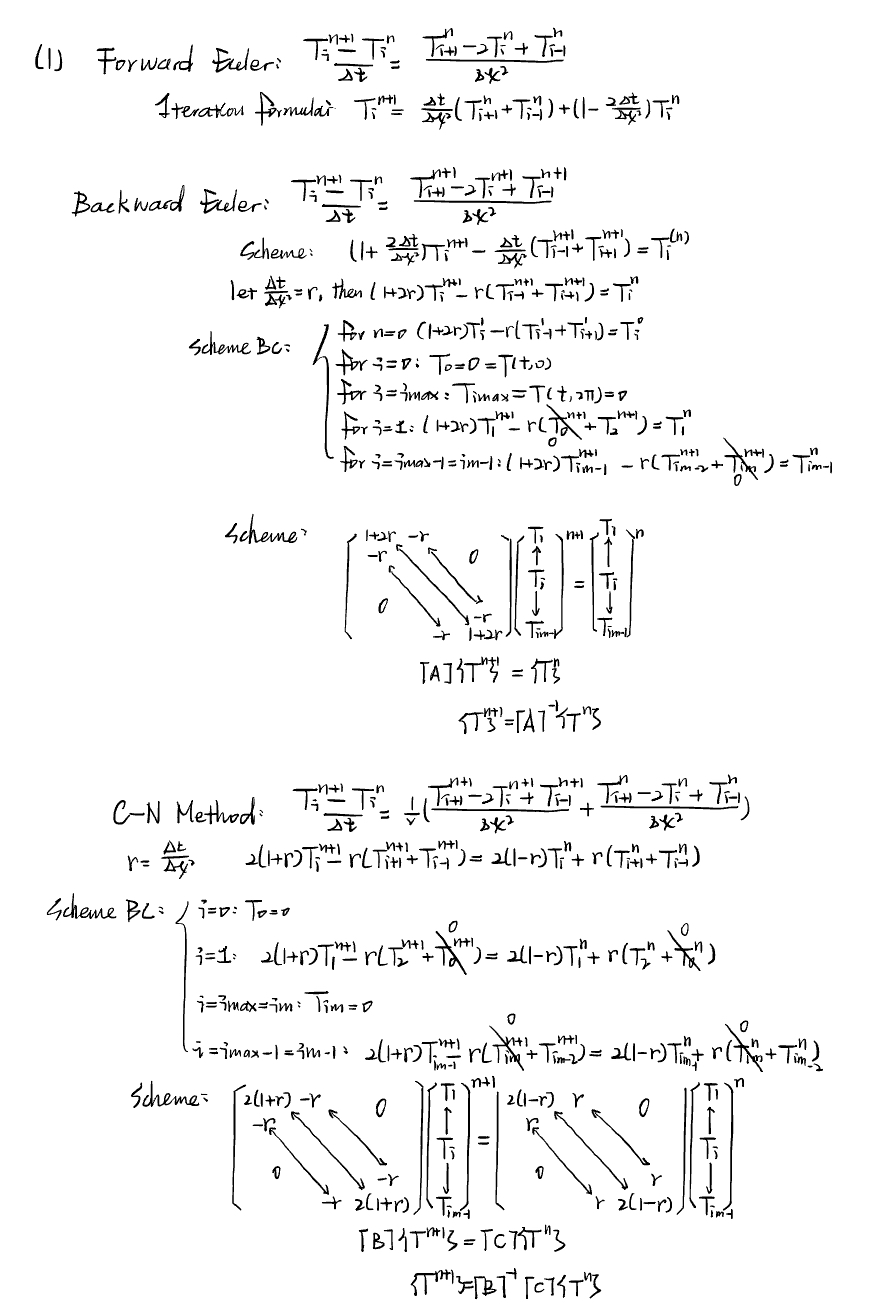 (1) Forward Euler: (T_i^{n+1} - T_i^n)/Δt = (T_{i+1}^n - 2T_i^n + T_{i-1}^n)/Δx²
Iteration formula: T_i^{n+1} = Δt/Δx² (T_{i+1}^n + T_{i-1}^n) + (1 - 2Δt/Δx²) T_i^n
Backward Euler: (T_i^{n+1} - T_i^n)/Δt = (T_{i+1}^{n+1} - 2T_i^{n+1} + T_{i-1}^{n+1})/Δx²
Scheme: (1 + 2Δt/Δx²) T_i^{n+1} - Δt/Δx² (T_{i-1}^{n+1} + T_{i+1}^{n+1}) = T_i^{(n)}
let Δt/Δx² = r, then (1+2r) T_i^{n+1} - r(T_{i-1}^{n+1} + T_{i+1}^{n+1}) = T_i^n
Scheme BC: { for n=0 (1+2r) T_i^1 - r(T_{i-1}^1 + T_{i+1}^1) = T_i^0
for i=0: T_0 = 0 = T(t,0)
for i=imax: T_{imax} = T(t,2π) = 0
for i=1: (1+2r) T_1^{n+1} - r(T_0^{n+1} + T_2^{n+1}) = T_1^n
0
for i=imax-1=im-1: (1+2r) T_{im-1}^{n+1} - r(T_{im-2}^{n+1} + T_{im}^{n+1}) = T_{im-1}^n
0
Scheme: [1+2r -r 0 -r 0 -r -r 1+2r] [T_1 ↑ T_i ↓ T_{im-1}]^{n+1} = [T_1 ↑ T_i ↓ T_{im-1}]^n
[A]{T^{n+1}} = {T^n}
{T^{n+1}} = [A]^{-1}{T^n}
C-N Method: (T_i^{n+1} - T_i^n)/Δt = 1/2 ((T_{i+1}^{n+1} - 2T_i^{n+1} + T_{i-1}^{n+1})/Δx² + (T_{i+1}^n - 2T_i^n + T_{i-1}^n)/Δx²)
r = Δt/Δx² 2(1+r) T_i^{n+1} - r(T_{i+1}^{n+1} + T_{i-1}^{n+1}) = 2(1-r) T_i^n + r(T_{i+1}^n + T_{i-1}^n)
Scheme BC: { i=0: T_0=0
0 0
i=1: 2(1+r) T_1^{n+1} - r(T_2^{n+1} + T_0^{n+1}) = 2(1-r) T_1^n + r(T_2^n + T_0^n)
i=imax=im: T_{im} = 0
0 0
i=imax-1=im-1: 2(1+r) T_{im-1}^{n+1} - r(T_{im}^{n+1} + T_{im-2}^{n+1}) = 2(1-r) T_{im-1}^n + r(T_{im}^n + T_{im-2}^n)
Scheme: [2(1+r) -r 0 -r 0 -r -r 2(1+r)] [T_1 ↑ T_i ↓ T_{im-1}]^{n+1} = [2(1-r) r 0 r 0 r r 2(1-r)] [T_1 ↑ T_i ↓ T_{im-1}]^n
[B]{T^{n+1}} = [C]{T^n}
{T^{n+1}} = [B]^{-1} [C]{T^n}